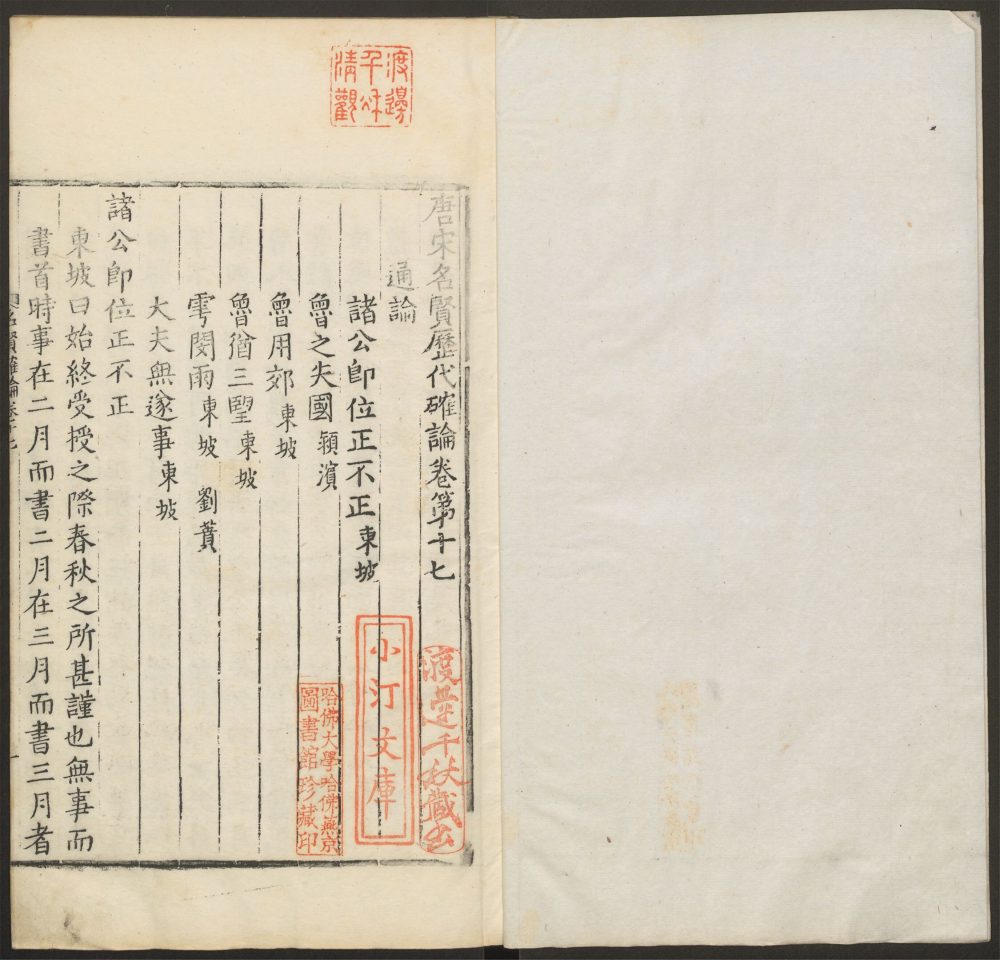 渡邊
千秋
清觀
唐宋名賢歷代確論卷第十七
通論
諸公即位正不正 東坡
魯之失國 潁濱
魯用郊 東坡
魯猶三望 東坡
雩閔雨 東坡 劉蕡
大夫無遂事 東坡
諸公即位正不正
東坡曰始終受授之際春秋之所甚謹也無事而
書首時事在二月而書二月在三月而書三月者
名賢確論卷十七
一
渡邊千秋藏書
小汀文庫
哈佛大學哈佛燕京
圖書館珍藏印